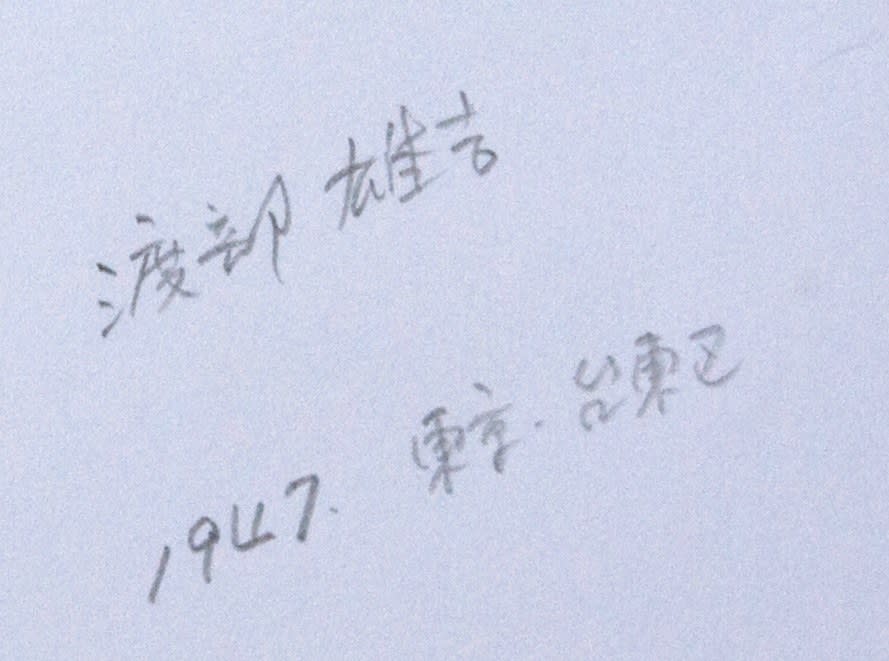 渡部雄吉
1947. 東京.台東区